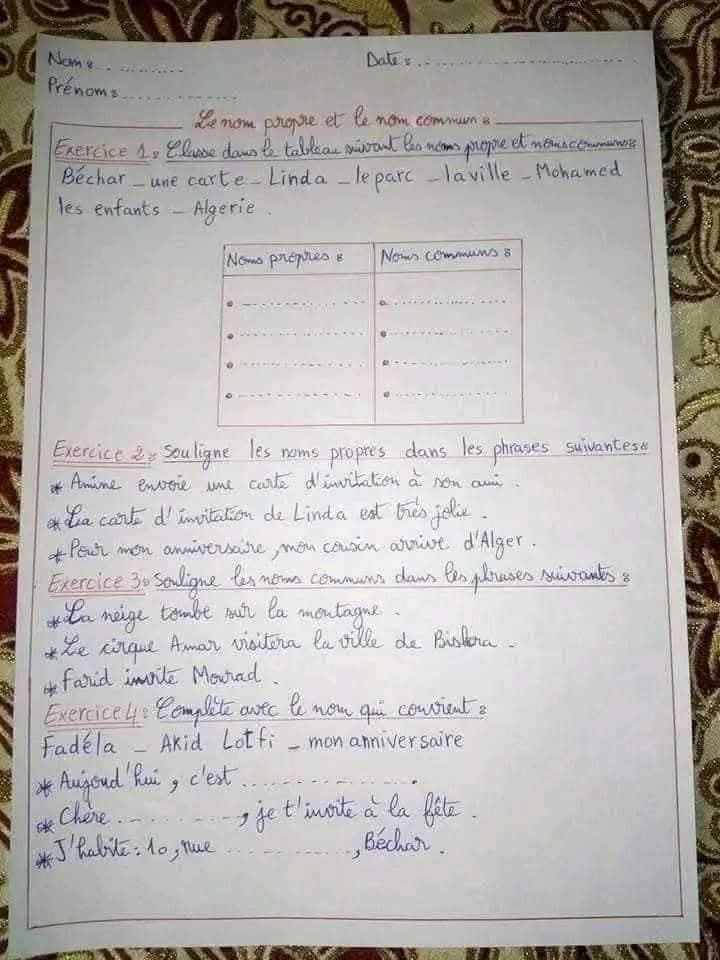 Nom : ............
Date : ..............................
Prénom : ................
Le nom propre et le nom commun :
Exercice 1 : Classe dans le tableau suivant les noms propre et noms communs :
Béchar _ une carte _ Linda _ le parc _ la ville _ Mohamed
les enfants _ Algerie .
Noms propres :
Noms communs :
Exercice 2 : Souligne les noms propres dans les phrases suivantes :
* Amine envoie une carte d'invitation à son ami .
* La carte d'invitation de Linda est trés jolie .
* Pour mon anniversaire , mon cousin arrive d'Alger .
Exercice 3 : Souligne les noms communs dans les phrases suivantes :
* La neige tombe sur la montagne .
* Le cirque Amar visitera la ville de Biskra .
* Farid invite Mourad .
Exercice 4 : Complète avec le nom qui convient :
Fadéla _ Akid Lotfi _ mon anniversaire
* Aujoud'hui , c'est .................... .
* Chère .............. , je t'invite à la fête .
* J'habite : 10 , rue .............. , Béchar .